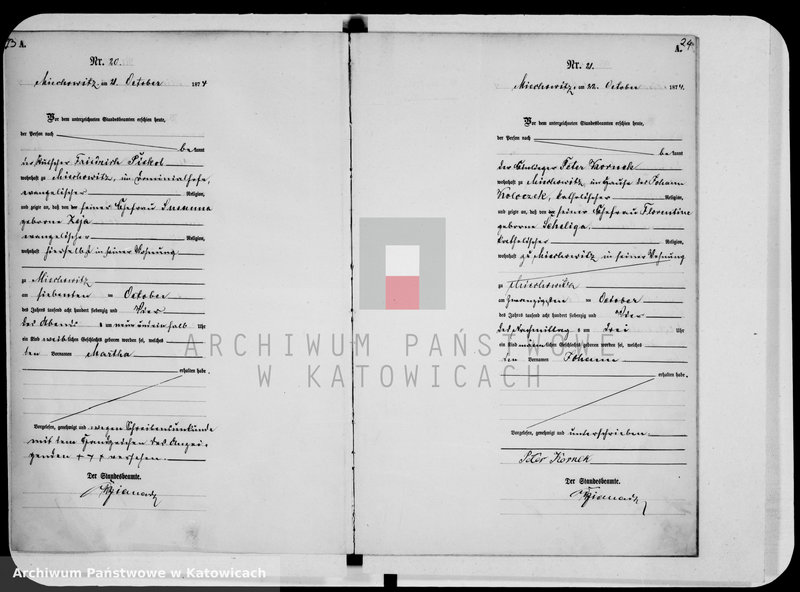 A.
Nr. 20.
Miechowitz am 21 October 1874
Vor dem unterzeichneten Standesbeamten erschien heute,
der Person nach
bekannt
der Kutscher Friedrich Piskol
wohnhaft zu Miechowitz, im Dominialhofe,
evangelischer Religion,
und zeigte an, daß von der seiner Ehefrau Susanna
geborne Zeja
evangelischer Religion,
wohnhaft hierselbst in seiner Wohnung
zu Miechowitz
am siebenten October
des Jahres tausend acht hundert siebenzig und Vier
des Abends um neun und ein halb Uhr
ein Kind weiblichen Geschlechts geboren worden sei, welches
den Vornamen Martha
erhalten habe.
Vorgelesen, genehmigt und wegen Schreibensunkunde
mit dem Handzeichen des Anzei-
genden + + + versehen.
Der Standesbeamte.
A. 24
Nr. 21.
Miechowitz am 22. October 1874.
Vor dem unterzeichneten Standesbeamten erschien heute,
der Person nach
bekannt
der Peter Kornek
wohnhaft zu Miechowitz, im Hause des Johann
Koloczek, katholischer Religion,
und zeigte an, daß von der seiner Ehefrau Florentine
geborne Scheliga,
katholischer Religion,
wohnhaft zu Miechowitz in seiner Wohnung
zu Miechowitz
am zwanzigsten October
des Jahres tausend acht hundert siebenzig und Vier
des Nachmittag um drei Uhr
ein Kind männlichen Geschlechts geboren worden sei, welches
den Vornamen Johann
erhalten habe.
Vorgelesen, genehmigt und unterschrieben.
Peter Kornek
Der Standesbeamte.
ARCHIWUM PAŃSTWOWE
W KATOWICACH
Archiwum Państwowe w Katowicach